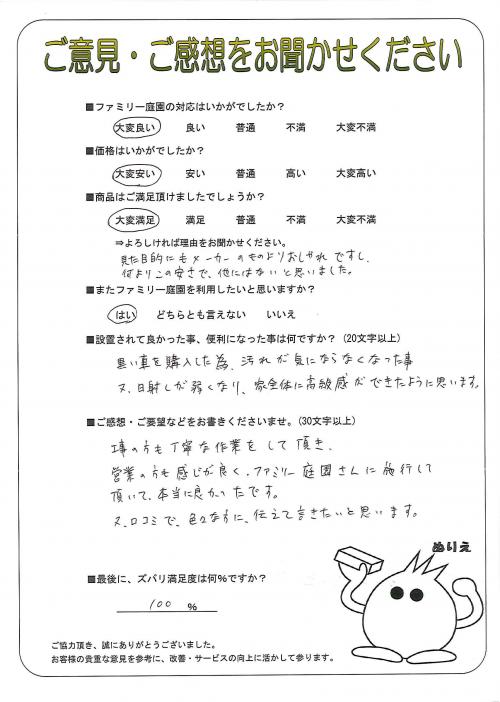 ご意見・ご感想をお聞かせください
■ファミリー庭園の対応はいかがでしたか？
大変良い 良い 普通 不満 大変不満
■価格はいかがでしたか？
大変安い 安い 普通 高い 大変高い
■商品はご満足頂けましたでしょうか？
大変満足 満足 普通 不満 大変不満
⇒よろしければ理由をお聞かせください。
見た目的にもメーカーのものよりおしゃれですし、
何よりこの安さで、他にはないと思いました。
■またファミリー庭園を利用したいと思いますか？
はい どちらとも言えない いいえ
■設置されて良かった事、便利になった事は何ですか？（20文字以上）
黒い車を購入した為、汚れが気にならなくなった事
又、日射しが弱くなり、家全体に高級感ができたように思います。
■ご感想・ご要望などをお書きくださいませ。（30文字以上）
工事の方も丁寧な作業をして頂き、
営業の方も感じが良く、ファミリー庭園さんに施行して
頂いて、本当に良かったです。
又、口コミで、色々な方に、伝えて言きたいと思います。
ぬりえ
■最後に、ズバリ満足度は何％ですか？
100 ％
ご協力頂き、誠にありがとうございました。
お客様の貴重な意見を参考に、改善・サービスの向上に活かして参ります。